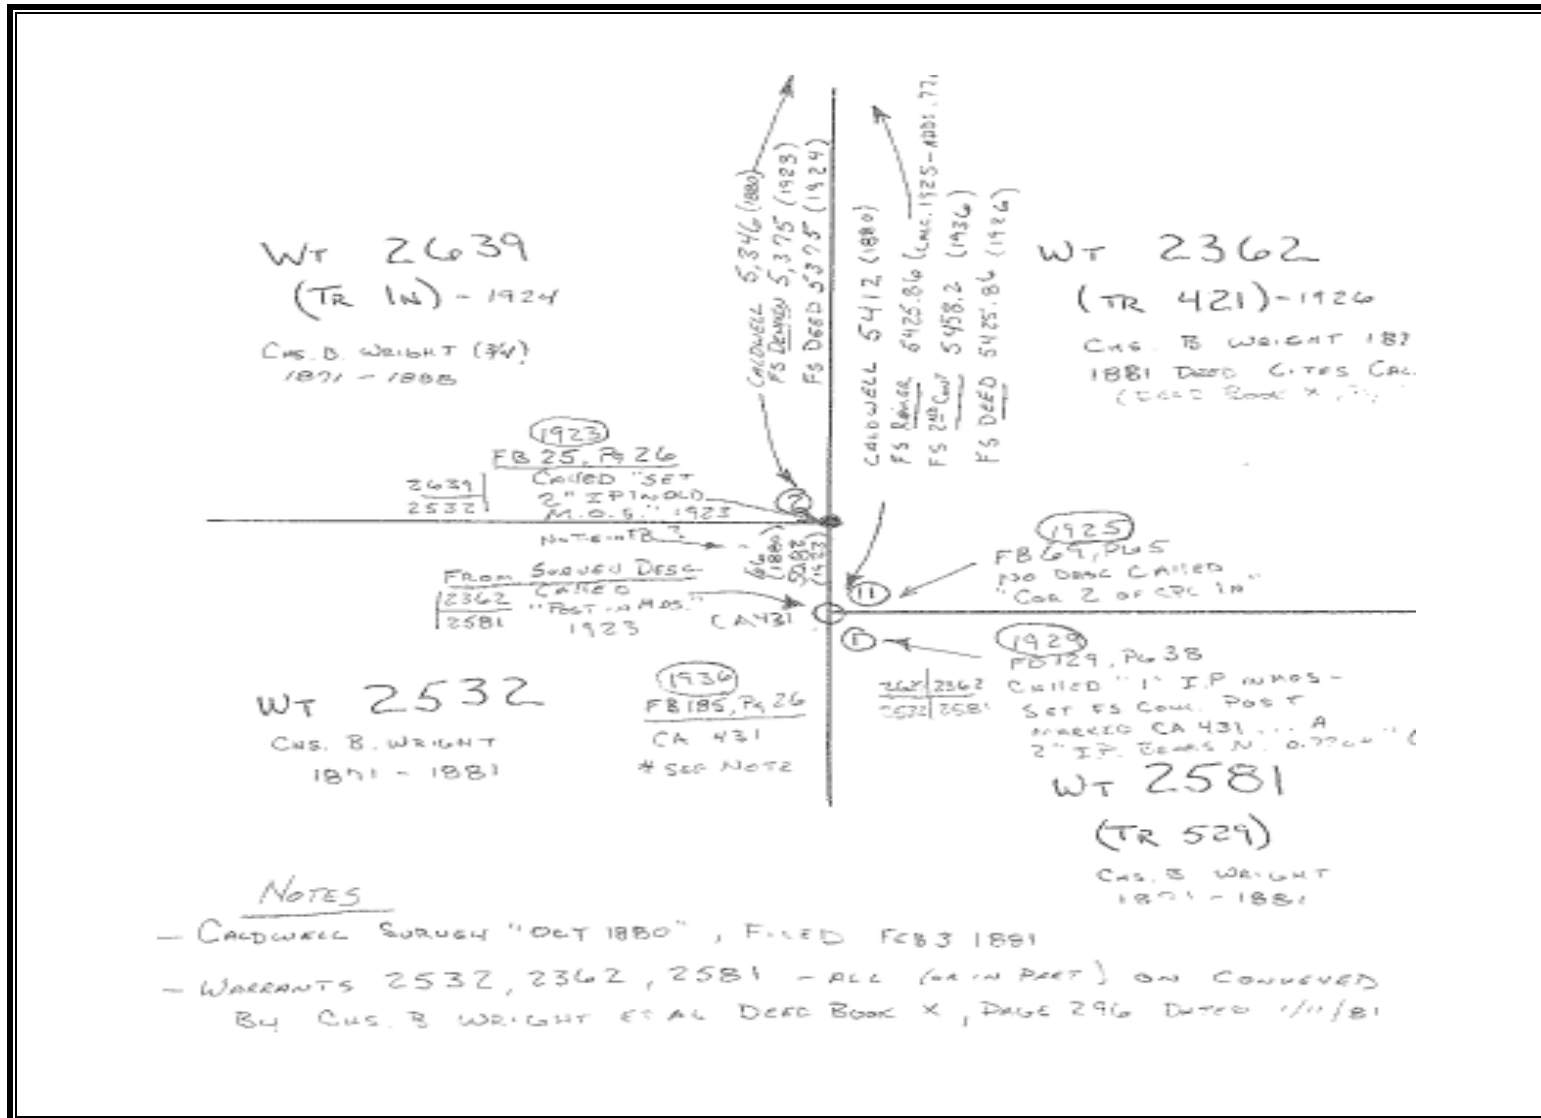 WT 2639
(TR 1N) - 1924
CHS. B. WRIGHT (3/4)
1871 - 1888
CALDWELL 5,346 (1880)
FS DENNEN 5,375 (1923)
FS DEED 5375 (1924)
CALDWELL 5412 (1880)
FS 5425.86 (CALC. 1925 - ADDS .77
FS 2ND CONT 5458.2 (1936)
FS DEED 5425.86 (1926)
WT 2362
(TR 421) - 1926
CHS. B WRIGHT 187
1881 DEED CITES CAL
BOOK X,
1923
FB 25, Pg 26
CALLED "SET
2" I P IN OLD
M.O.S." 1923
2639
2532
2
NOT IN FB ?
66
(1880)
50.82
(1923)
FROM SURVEY DESC
CALLED
"POST IN MOS."
1923
2362
2581
CA 431
11
1
1925
FB 69, PG 5
NO DESC CALLED
"COR 2 OF CPL IN"
1929
FB 129, PG 38
CALLED "1" I.P IN MOS -
SET FS CONC. POST
MARKED CA 431 ... A
2" I.P. BEARS N. 0.77
2362
2532 2581
WT 2532
CHS. B. WRIGHT
1871 - 1881
1936
FB 185, Pg 26
CA 431
* SEE NOTE
WT 2581
(TR 529)
CHS. B WRIGHT
1871 - 1881
NOTES
- CALDWELL SURVEY "OCT 1880", FILED FEB 3 1881
- WARRANTS 2532, 2362, 2581 - ALL (OR IN PART) ON CONVEYED
BY CHS. B WRIGHT ET AL DEED BOOK X, PAGE 296 DATED 1/11/81